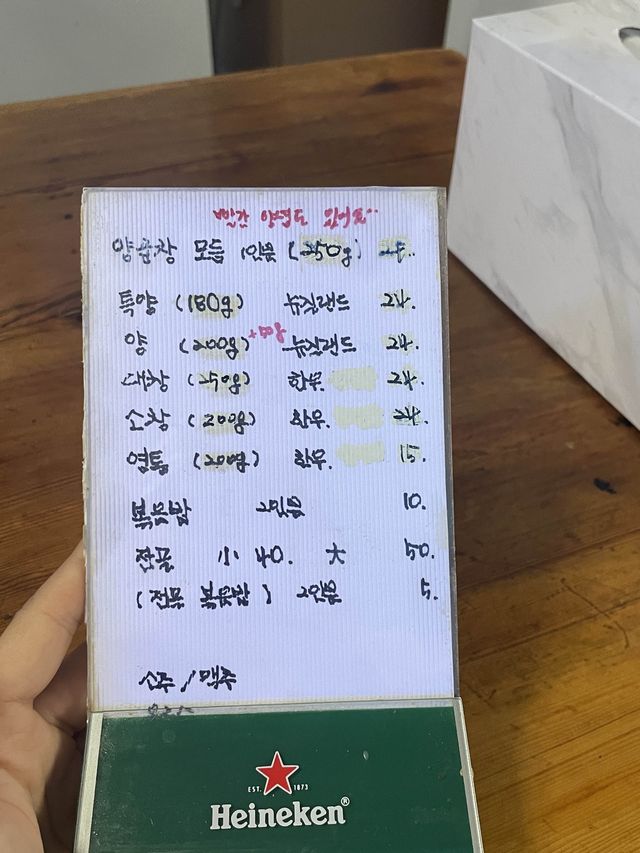 빨간 양념도 있어요..
양곱창 모듬 1인분 (250g)
특양 (180g) 뉴질랜드 24.
양 (200g) 뉴질랜드 24.
곱창 (250g) 한우 24.
소창 (200g) 한우.
염통 (200g) 한우. 15.
볶음밥 2인분 10.
전골 小 40. 大 50.
(전골 볶음밥) 2인분 5.
소주/맥주
EST. 1873
Heineken®